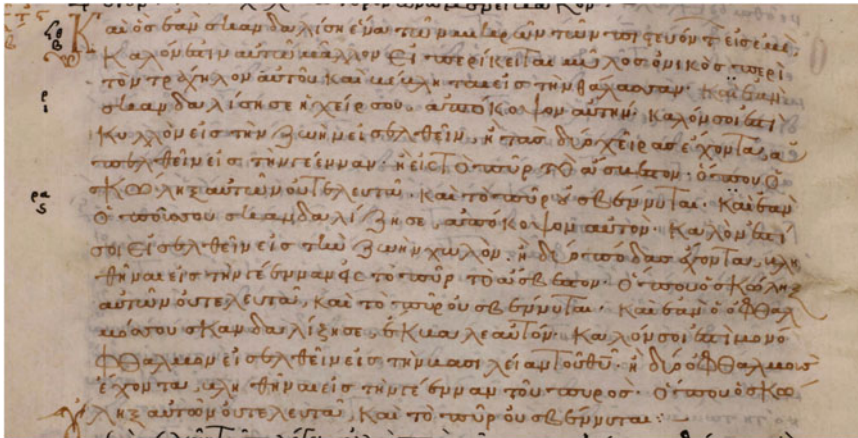 Καὶ ὃς ἐὰν σκανδαλίση ἕνα τῶν μικρῶν τῶν πιστευόντ εἰς ἐμὲ
Καλόν ἐστιν αὐτῶ μᾶλλον εἰ περίκειται μύλος ὀνικὸς περὶ
τὸν τράχηλον αὐτοῦ καὶ βέβληται εἰς τὴν θάλασσαν· Καὶ ἐὰν
σκανδαλίση σε ἡ χείρ σου, ἀπόκοψον αὐτήν· καλόν σοι ἐστὶ
κυλλὸν εἰς τὴν ζωὴν εἰσελθεῖν, ἢ τὰς δύο χεῖρας ἔχοντα, ἀ
πελθεῖν εἰς τὴν γέενναν· ἢ εἰς τὸ πῦρ τὸ ἄσβεστον· ὅπου ὁ
σκώληξ αὐτῶν οὐ τελευτᾶ, καὶ τὸ πῦρ οὐ σβέννυται· Καὶ ἐὰν
ὁ πούς σου σκανδαλίζη σε, ἀπόκοψον αὐτόν· καλόν ἐστί
σοι εἰσελθεῖν εἰς τὴν ζωὴν χωλὸν, ἢ δύο πόδας ἔχοντα, βλη
θῆναι εἰς τὴν γέενναν εἰς τὸ πῦρ τὸ ἄσβεστον· ὅπου ὁ σκώληξ
αὐτῶν οὐ τελευτᾶ, καὶ τὸ πῦρ οὐ σβέννυται· καὶ ἐὰν ὁ ὀφθαλ
μός σου σκανδαλίζη σε, ἔκβαλε αὐτόν· καλόν σοι ἐστὶ μονό
φθαλμον εἰσελθεῖν εἰς τὴν βασιλείαν τοῦ θυ, ἢ δύο ὀφθαλμοὺς
ἔχοντα, βληθῆναι εἰς τὴν γέενναν τοῦ πυρός· ὅπου ὁ σκώ
ληξ αὐτῶν οὐ τελευτᾶ, καὶ τὸ πῦρ οὐ σβέννυται·